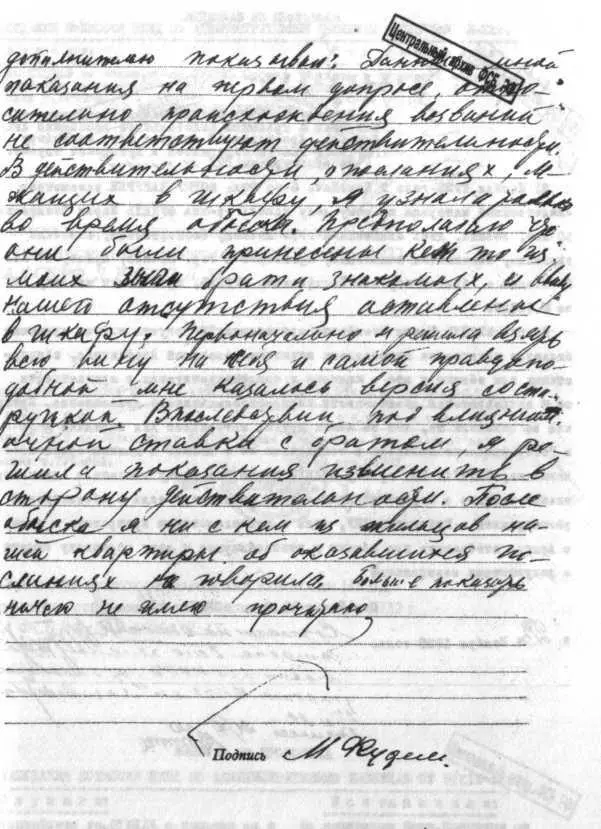 Центральный архив ФСБ
дополнительно показываю: Данные мной
показания на первом допросе, относ-
сительно происхождения воззваний
не соответствуют действительности.
В действительности, о посланиях, ле-
жащих в шкафу, я узнала только
во время обыска. Предполагаю что
они были принесены кем то из
моих или брата знакомых, и ввиду
нашего отсутствия оставлены
в шкафу. Первоначально я решила взять
всю вину на себя и самой правдопо-
добной мне казалась версия со ста-
рушкой. Впоследствии, под влиянием
очной ставки с братом, я ре-
шила показания изменить в
сторону действительности. После
обыска я ни с кем из жильцов на-
шей квартиры об оказавшихся по-
сланиях не говорила. Больше показать
ничего не имею прочитано
Подпись М Фудель.